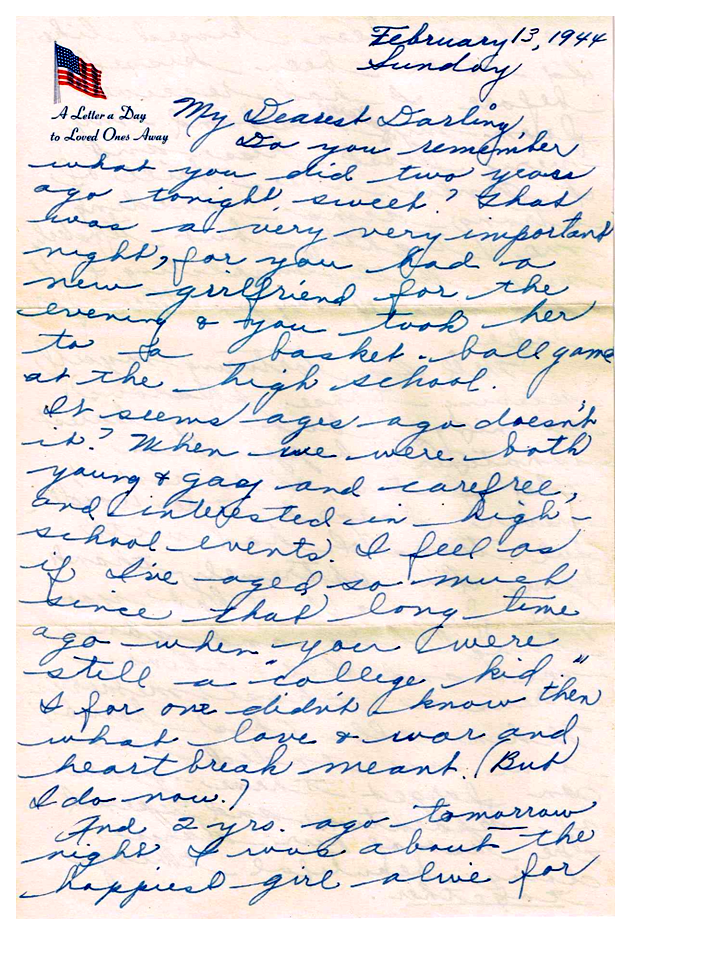 February 13, 1944
Sunday
A Letter a Day
to Loved Ones Away
My Dearest Darling,
Do you remember
what you did two years
ago tonight, sweet? That
was a very very important
night, for you had a
new girlfriend for the
evening & you took her
to a basket-ball game
at the high school.
It seems ages ago doesn't
it? When we were both
young & gay and carefree,
and interested in high-
school events. I feel as
if I've aged so much
since that long time
ago when you were
still a "college kid"
I for one didn't know then
what love & war and
heartbreak meant. (But
I do now.)
And 2 yrs. ago tomorrow
night I was about the
happiest girl alive for